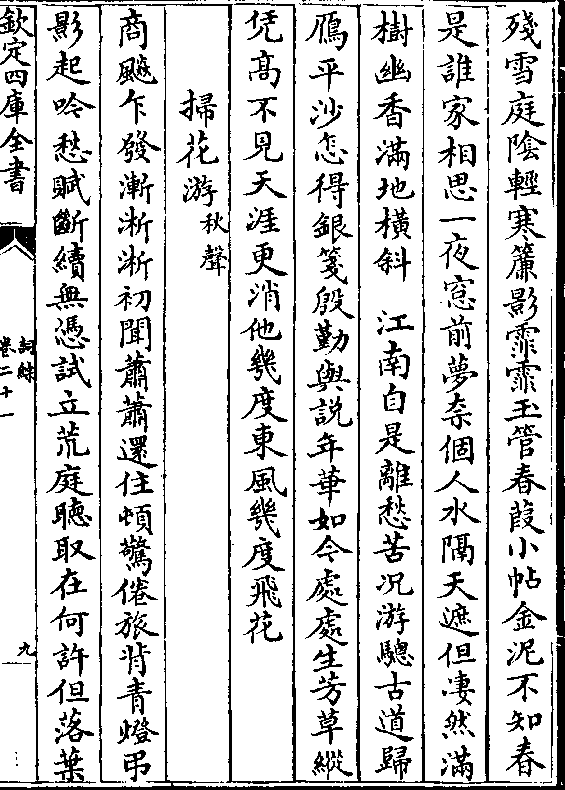 殘雪庭隂輕寒簾影霏霏玉管春葭小帖金泥不知春
是誰家相思一夜窓前夢柰個人水隔天遮但淒然滿
樹幽香滿地橫斜　江南自是離愁苦況游驄古道歸
鴈平沙怎得銀箋殷勤與説年華如今處處生芳草縱
凭髙不見天涯更消他幾度東風幾度飛花
掃花游秋聲
商飈乍發漸淅淅初聞蕭蕭還住頓驚倦旅背青燈弔
影起吟愁賦斷續無憑試立荒庭聴取在何許但落葉
欽定四庫全書
詞綜
卷二十一
九